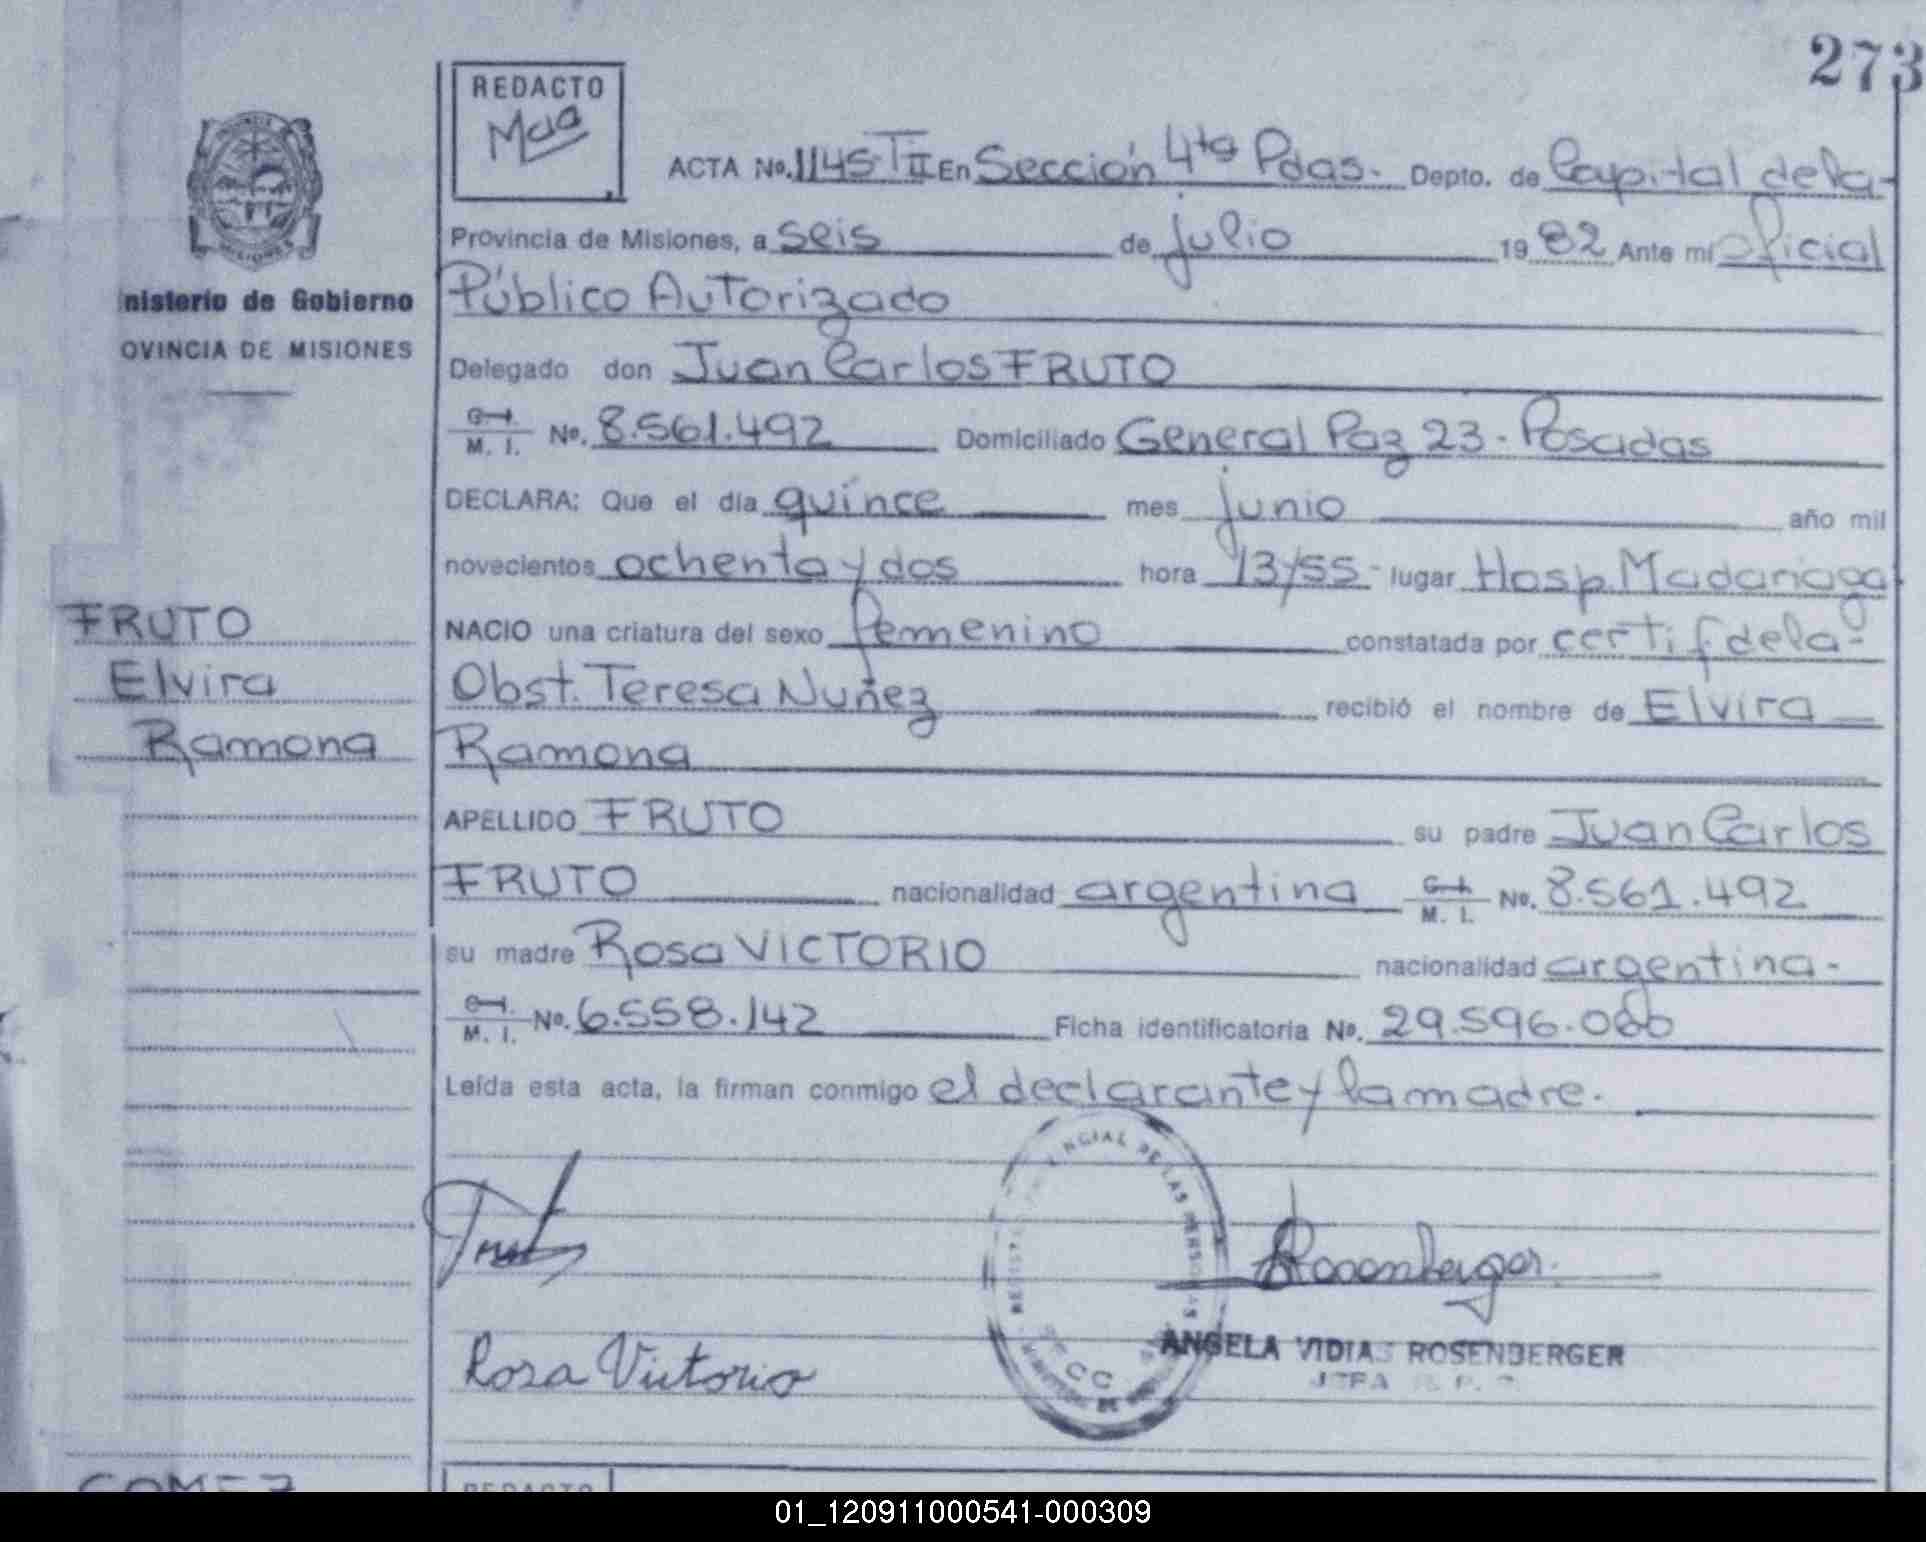 273
REDACTO
ACTA No. 1145 TII En Sección 4ta Pdas. Depto. de Capital de la
Provincia de Misiones, a seis de julio 1982 Ante mí oficial
Público Autorizado
nisterio de Gobierno
OVINCIA DE MISIONES
Delegado don Juan Carlos FRUTO
C. I.
M. I. No. 8.561.492 Domiciliado General Paz 23 - Posadas
DECLARA: Que el día quince mes junio año mil
novecientos ochenta y dos hora 13/55 lugar Hosp. Madariaga
NACIO una criatura del sexo femenino constatada por certif de la
Obst. Teresa Nuñez recibió el nombre de Elvira
Ramona
FRUTO
Elvira
Ramona
APELLIDO FRUTO su padre Juan Carlos
FRUTO nacionalidad argentina C. I.
M. I. No. 8.561.492
su madre Rosa VICTORIO nacionalidad argentina.
C. I.
M. I. No. 6.558.142 Ficha identificatoria No. 29.596.060
Leída esta acta, la firman conmigo el declarante y la madre.
NCIAL DE LAS PERSONAS
Rosenberger
Rosa Victorio
ANGELA VIDIA ROSENBERGER
JEFA
GOMEZ
REDACTO
01_120911000541-000309